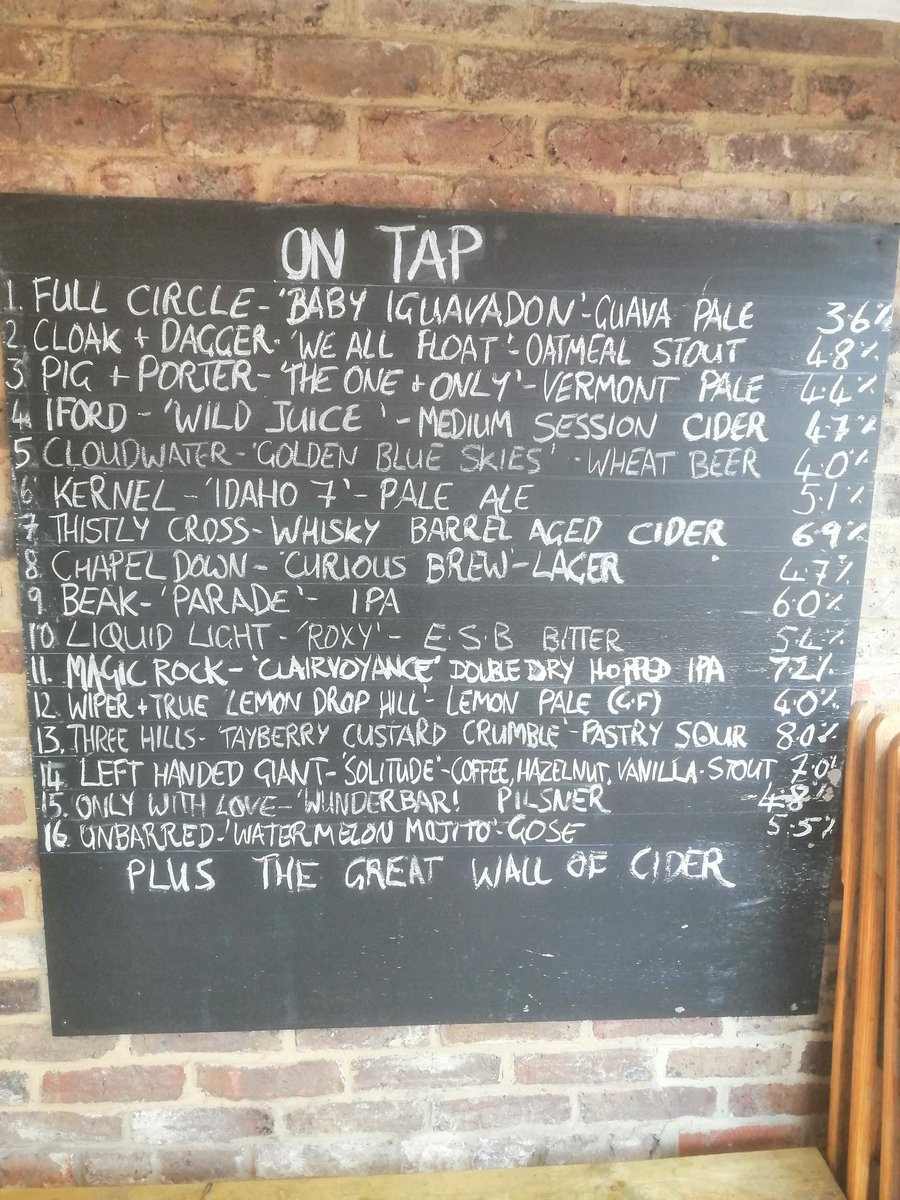 ON TAP
1. FULL CIRCLE - 'BABY IGUAVADON' - GUAVA PALE 3.6%
2 CLOAK + DAGGER - 'WE ALL FLOAT' - OATMEAL STOUT 4.8%
3. PIG + PORTER - 'THE ONE + ONLY' - VERMONT PALE 4.4%
4 IFORD - 'WILD JUICE' - MEDIUM SESSION CIDER 4.7%
5 CLOUDWATER - 'GOLDEN BLUE SKIES' - WHEAT BEER 4.0%
6 KERNEL - 'IDAHO 7' - PALE ALE 5.1%
7. THISTLY CROSS - WHISKY BARREL AGED CIDER 6.9%
8 CHAPEL DOWN - 'CURIOUS BREW' - LAGER 4.7%
9. BEAK - 'PARADE' - IPA 6.0%
10. LIQUID LIGHT - 'ROXY' - E.S.B BITTER 5.4%
11. MAGIC ROCK - 'CLAIRVOYANCE' DOUBLE DRY HOPPED IPA 7.2%
12. WIPER + TRUE 'LEMON DROP HILL' - LEMON PALE (G.F) 4.0%
13. THREE HILLS - 'TAYBERRY CUSTARD CRUMBLE' - PASTRY SOUR 8.0%
14 LEFT HANDED GIANT - 'SOLITUDE' - COFFEE, HAZELNUT, VANILLA - STOUT 7.0%
15. ONLY WITH LOVE - 'WUNDERBAR! PILSNER 4.8%
16. UNBARRED - 'WATERMELON MOJITO' - GOSE 5.5%
PLUS THE GREAT WALL OF CIDER